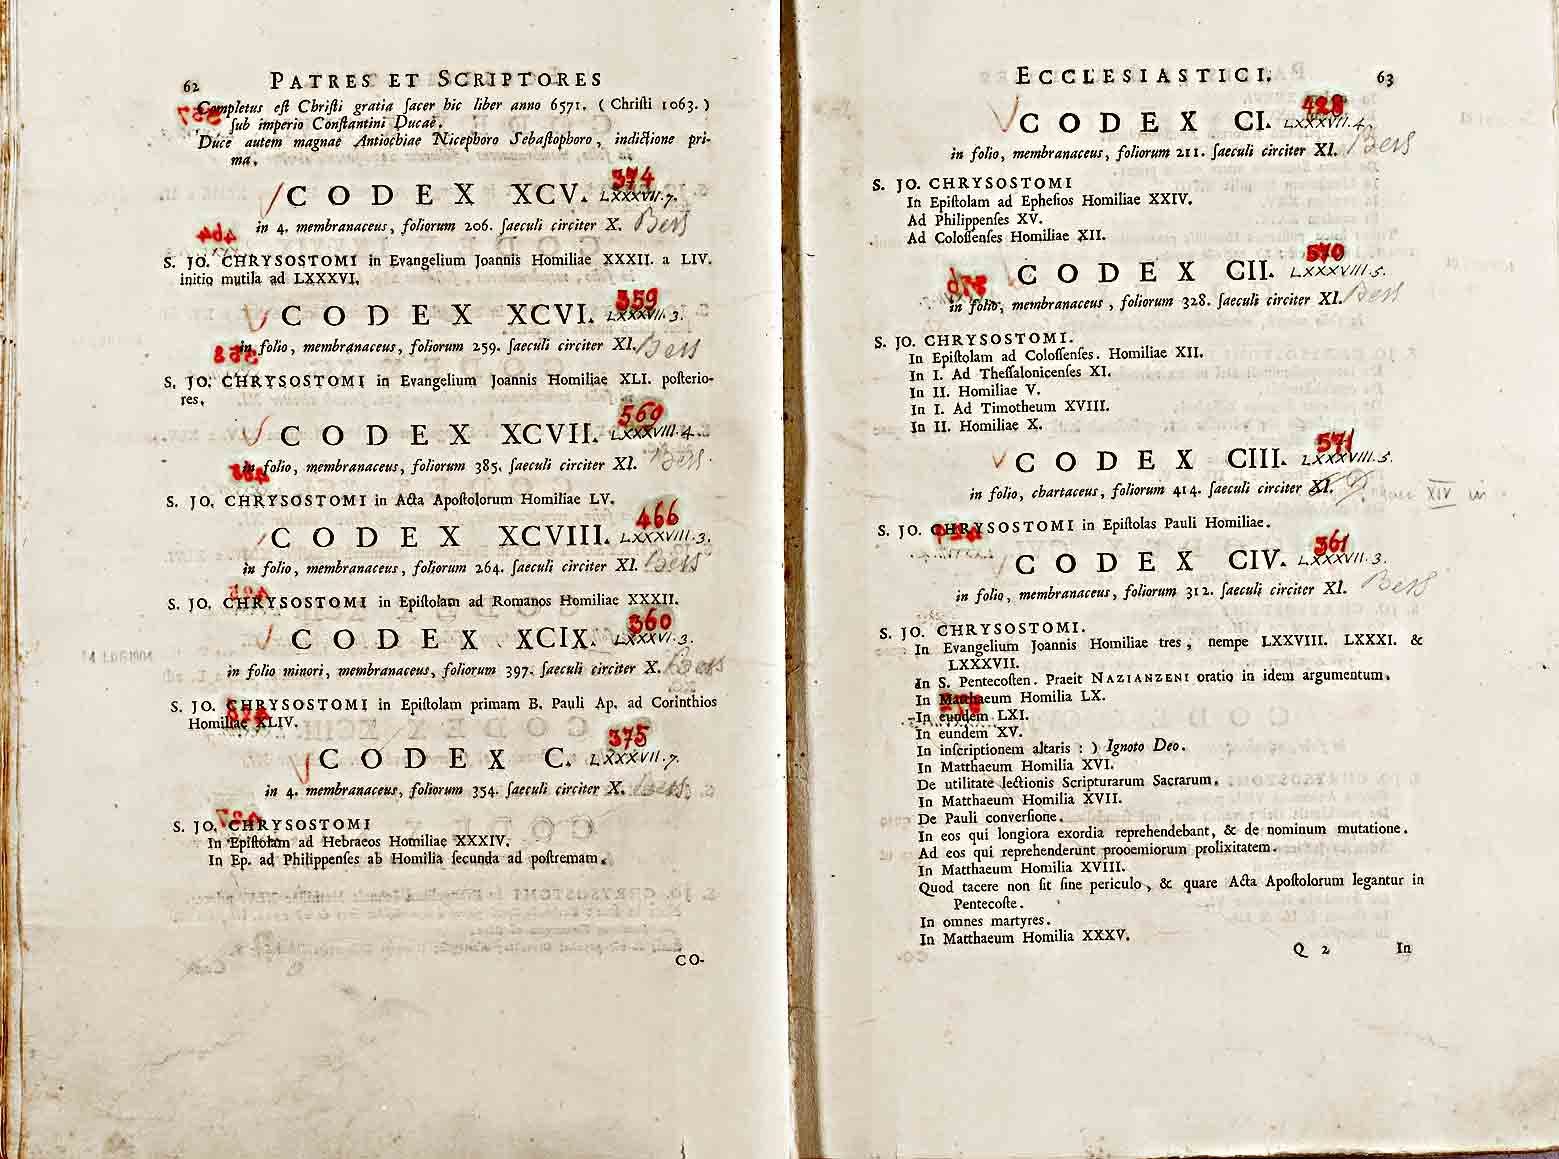 62 PATRES ET SCRIPTORES
Completus eſt Chriſti gratia ſacer hic liber anno 6571. (Chriſti 1063.)
ſub imperio Conſtantini Ducae.
Duce autem magnae Antiochiae Nicephoro Sebaſtophoro, indictione pri-
ma.
374
CODEX XCV. LXXXVII.7.
in 4. membranaceus, foliorum 206. ſaeculi circiter X. Bess
S. JO. CHRYSOSTOMI in Evangelium Joannis Homiliae XXXII. a LIV.
initio mutila ad LXXXVI.
359
CODEX XCVI. LXXXVII.3.
in folio, membranaceus, foliorum 259. ſaeculi circiter XI. Bess
S. JO. CHRYSOSTOMI in Evangelium Joannis Homiliae XLI. poſterio-
res.
569
CODEX XCVII. LXXXVIII.4.
in folio, membranaceus, foliorum 385. ſaeculi circiter XI. Bess.
S. JO. CHRYSOSTOMI in Acta Apoſtolorum Homiliae LV.
466
CODEX XCVIII. LXXXVIII.3.
in folio, membranaceus, foliorum 264. ſaeculi circiter XI. Bess
S. JO. CHRYSOSTOMI in Epiſtolam ad Romanos Homiliae XXXII.
360
CODEX XCIX. LXXXVI.3.
in folio minori, membranaceus, foliorum 397. ſaeculi circiter X. Bess
S. JO. CHRYSOSTOMI in Epiſtolam primam B. Pauli Ap. ad Corinthios
Homiliae XLIV.
375
CODEX C. LXXXVII.7.
in 4. membranaceus, foliorum 354. ſaeculi circiter X. Bess
S. JO. CHRYSOSTOMI
In Epiſtolam ad Hebraeos Homiliae XXXIV.
In Ep. ad Philippenſes ab Homilia ſecunda ad poſtremam.
CO-
ECCLESIASTICI. 63
428
CODEX CI. LXXXVII.4.
in folio, membranaceus, foliorum 211. ſaeculi circiter XI. Bess
S. JO. CHRYSOSTOMI
In Epiſtolam ad Epheſios Homiliae XXIV.
Ad Philippenſes XV.
Ad Coloſſenſes Homiliae XII.
570
CODEX CII. LXXXVIII.5.
in folio, membranaceus, foliorum 328. ſaeculi circiter XI. Bess
S. JO. CHRYSOSTOMI.
In Epiſtolam ad Coloſſenſes. Homiliae XII.
In I. Ad Theſſalonicenſes XI.
In II. Homiliae V.
In I. Ad Timotheum XVIII.
In II. Homiliae X.
571
CODEX CIII. LXXXVIII.5.
in folio, chartaceus, foliorum 414. ſaeculi circiter XI. XIV
S. JO. CHRYSOSTOMI in Epiſtolas Pauli Homiliae.
361
CODEX CIV. LXXXVII.3.
in folio, membranaceus, foliorum 312. ſaeculi circiter XI. Bess
S. JO. CHRYSOSTOMI.
In Evangelium Joannis Homiliae tres, nempe LXXVIII. LXXXI. &
LXXXVII.
In S. Pentecoſten. Praeit NAZIANZENI oratio in idem argumentum.
In Matthaeum Homilia LX.
In eundem LXI.
In eundem XV.
In inſcriptionem altaris : ) Ignoto Deo.
In Matthaeum Homilia XVI.
De utilitate lectionis Scripturarum Sacrarum.
In Matthaeum Homilia XVII.
De Pauli converſione.
In eos qui longiora exordia reprehendebant, & de nominum mutatione.
Ad eos qui reprehenderunt prooemiorum prolixitatem.
In Matthaeum Homilia XVIII.
Quod tacere non ſit ſine periculo, & quare Acta Apoſtolorum legantur in
Pentecoſte.
In omnes martyres.
In Matthaeum Homilia XXXV.
Q 2 In